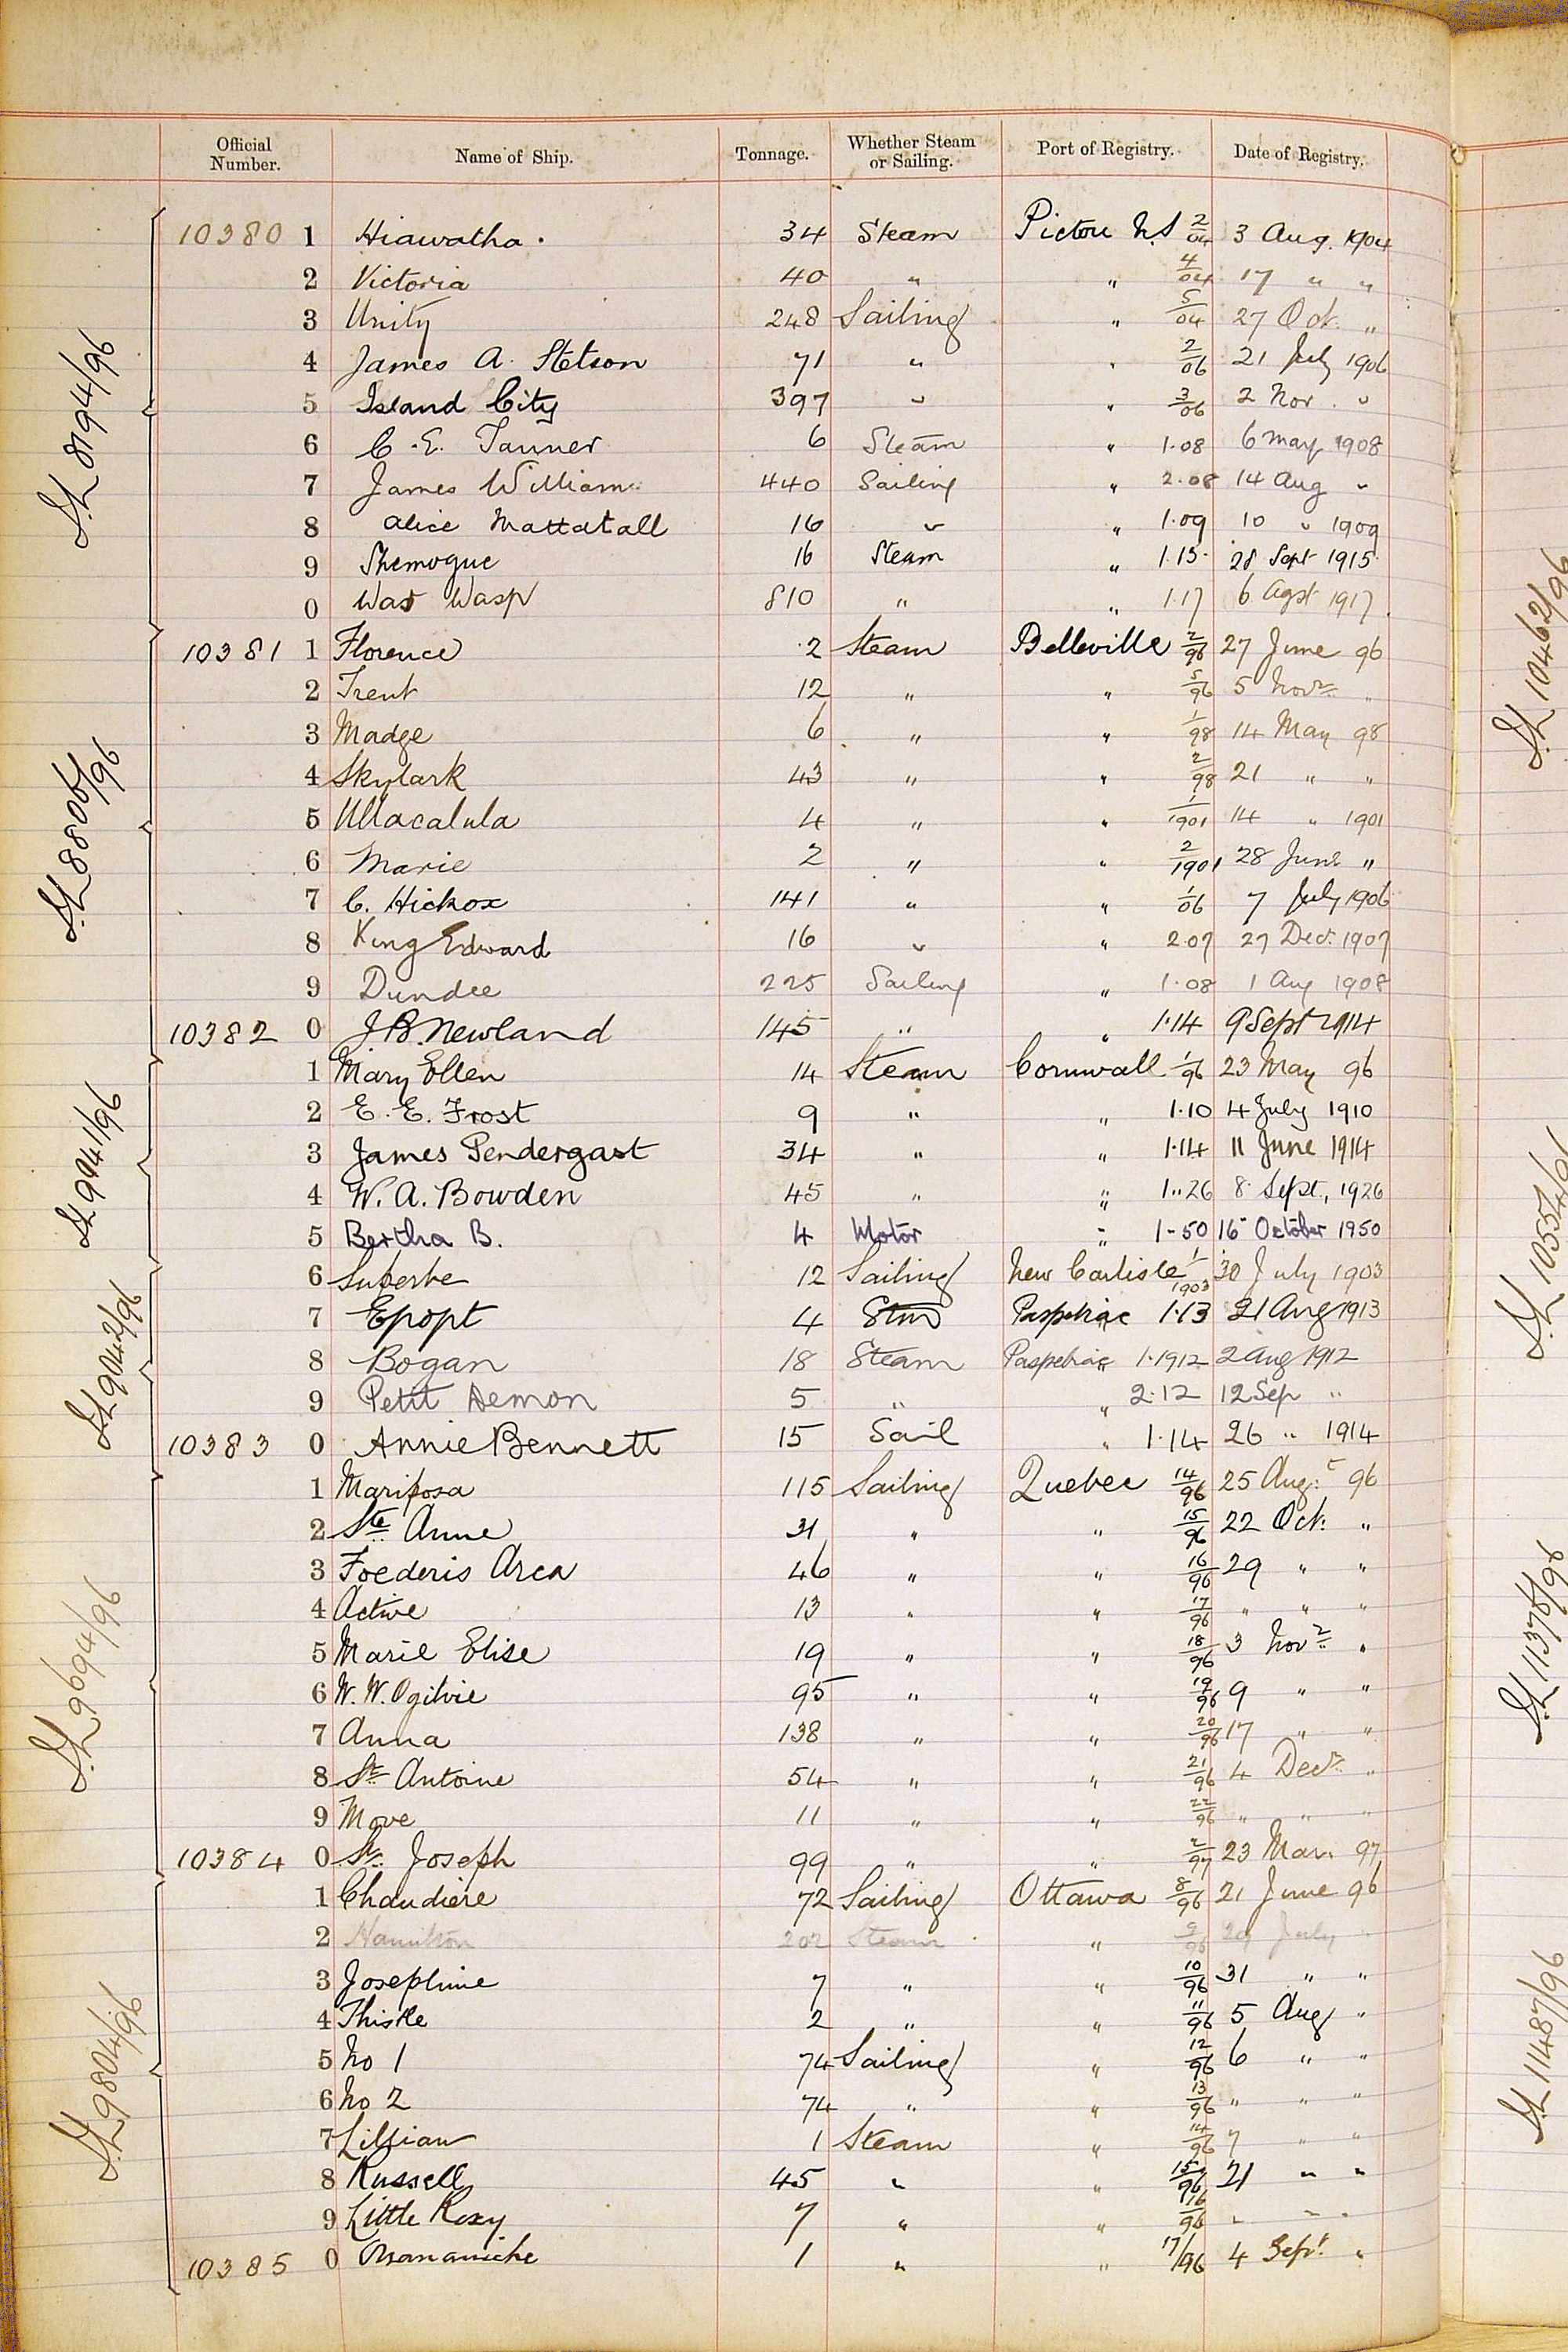 Official Number. Name of Ship. Tonnage. Whether Steam or Sailing. Port of Registry. Date of Registry.
10380 1 Hiawatha. 34 Steam Pictou N.S 2/04 3 Aug. 1904
2 Victoria 40 " " 4/04 17 " "
3 Unity 248 Sailing " 5/04 27 Oct. "
4 James A. Stetson 71 " " 2/06 21 July 1906
5 Island City 397 " " 3/06 2 Nov. "
6 C. E. Tanner 6 Steam " 1.08 6 May 1908
7 James William 440 Sailing " 2.08 14 Aug "
8 Alice Mattatall 16 " " 1.09 10 " 1909
9 Shemogue 16 Steam " 1.15 28 Sept 1915
0 War Wasp 810 " " 1.17 6 Agst 1917
10381 1 Florence 2 Steam Belleville 2/96 27 June 96
2 Trent 12 " " 5/96 5 Novr "
3 Madge 6 " " 1/98 14 May 98
4 Skylark 43 " " 2/98 21 " "
5 Ullacalula 4 " " 1/1901 14 " 1901
6 Marie 2 " " 2/1901 28 June "
7 C. Hickox 141 " " 1/06 7 July 1906
8 King Edward 16 " " 2.07 27 Dec. 1907
9 Dundee 225 Sailing " 1.08 1 Aug 1908
10382 0 J.B. Newland 145 " " 1.14 9 Sept 1914
1 Mary Ellen 14 Steam Cornwall 1/96 23 May 96
2 E. E. Frost 9 " " 1.10 4 July 1910
3 James Pendergast 34 " " 1.14 11 June 1914
4 W. A. Bowden 45 " " 1..26 8 Sept, 1926
5 Bertha B. 4 Motor " 1-50 16 October 1950
6 Superbe 12 Sailing New Carlisle 1/1903 30 July 1903
7 Epopt 4 Stm Paspebiac 1.13 21 Aug 1913
8 Bogan 18 Steam Paspebiac 1.1912 2 Aug 1912
9 Petit Demon 5 " " 2.12 12 Sep "
10383 0 Annie Bennett 15 Sail " 1.14 26 " 1914
1 Mariposa 115 Sailing Quebec 14/96 25 Aug.t 96
2 Ste Anne 31 " " 15/96 22 Oct. "
3 Foederis Arca 46 " " 16/96 29 " "
4 Active 13 " " 17/96 " " "
5 Marie Elise 19 " " 18/96 3 Novr "
6 W. W. Ogilvie 95 " " 19/96 9 " "
7 Anna 138 " " 20/96 17 " "
8 St Antoine 54 " " 21/96 4 Decr "
9 Move 11 " " 22/96 " " "
10384 0 St. Joseph 99 " " 2/97 23 Mar. 97
1 Chaudiere 72 Sailing Ottawa 8/96 21 June 96
2 Hamilton 202 Steam " 9/96 29 July
3 Josephine 7 " " 10/96 31 " "
4 Thistle 2 " " 11/96 5 Aug "
5 No 1 74 Sailing " 12/96 6 " "
6 No 2 74 " " 13/96 " " "
7 Lillian 1 Steam " 14/96 7 " "
8 Russell 45 " " 15/96 21 " "
9 Little Roxy 7 " " 16/96 " " "
10385 0 1 " " 17/96 4 Sept. "
8194/96
8806/96
9041/96
9042/96
9694/96
9804/96
10462/96
11378/96
11487/96